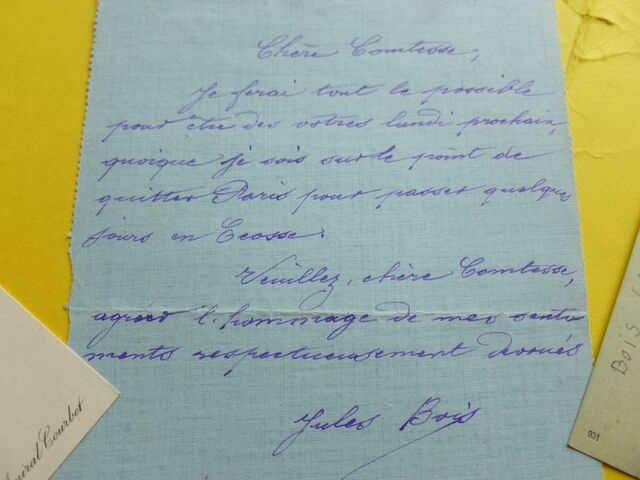 Chère Comtesse,
Je ferai tout le possible
pour être des vôtres lundi prochain,
quoique je sois sur le point de
quitter Paris pour passer quelques
jours en Ecosse.
Veuillez, chère Comtesse,
agreer l'hommage de mes senti
ments respectueusement dévoués
Jules Bois
amiral Courbet
BOIS
931